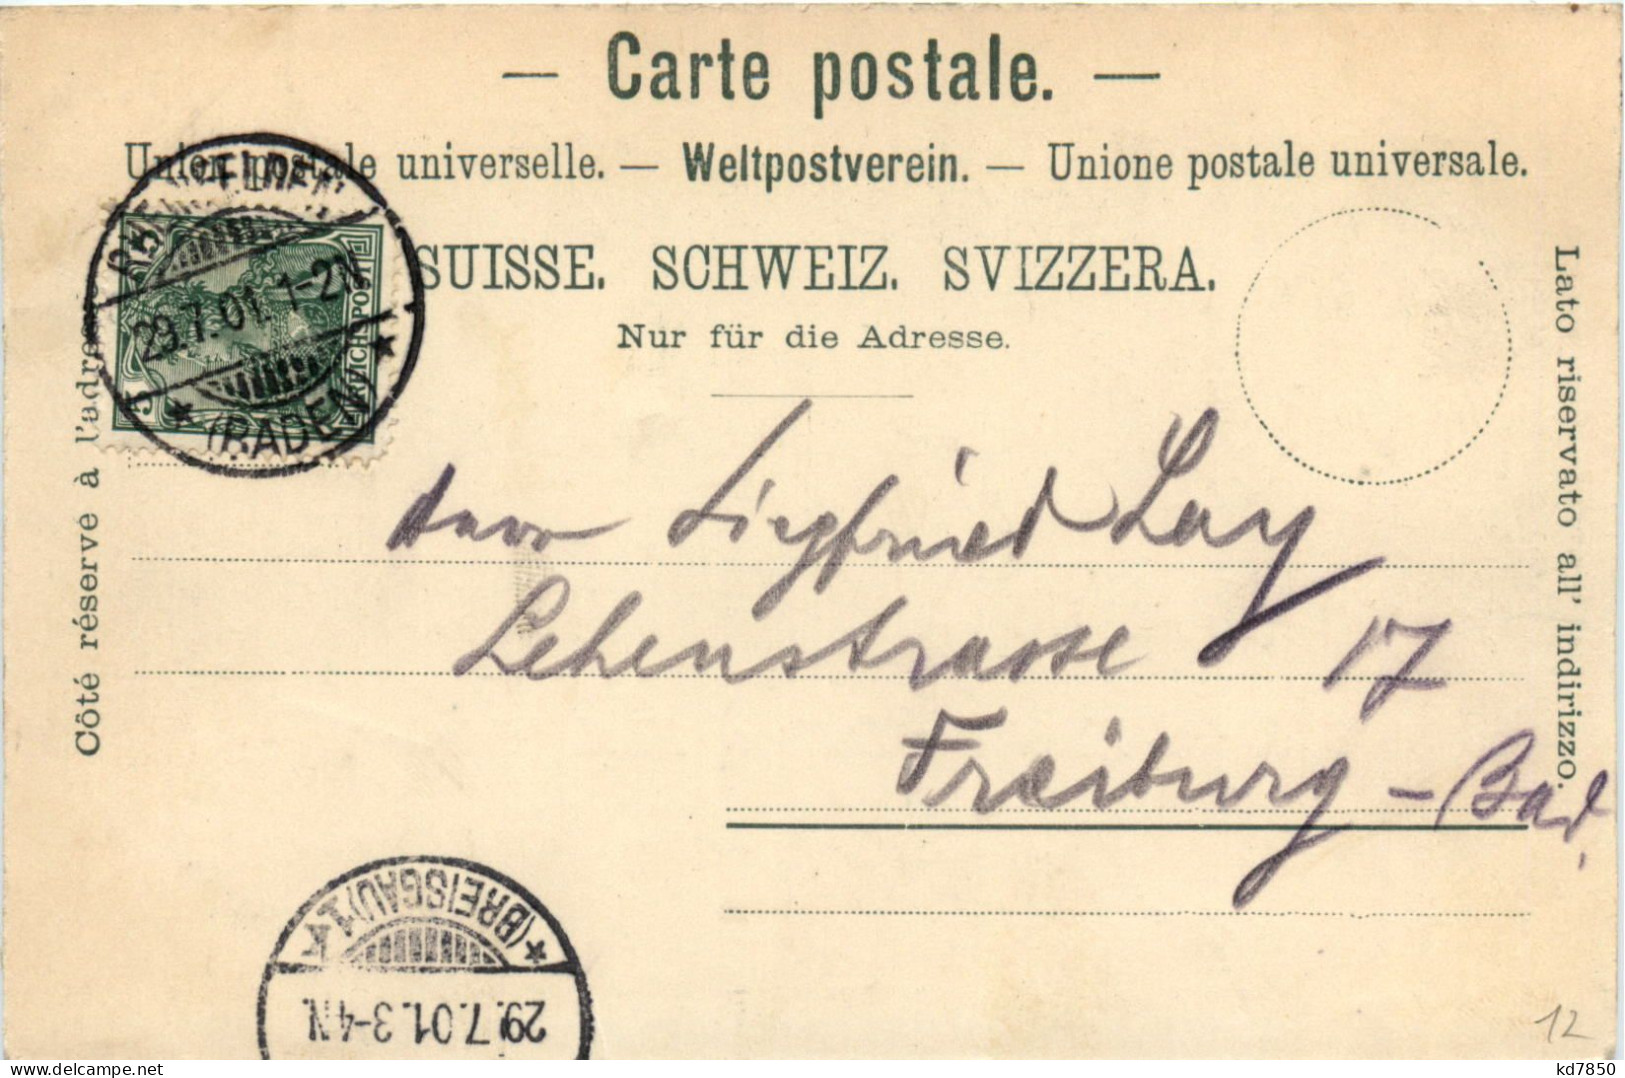 — Carte postale. —
Union postale universelle. — Weltpostverein. — Unione postale universale.
SUISSE. SCHWEIZ. SVIZZERA.
Nur für die Adresse.
Côté réservé à l'adresse
Lato riservato all' indirizzo.
RHEINFELDEN
29.7.01. 1-2N
(BADEN)
REICHSPOST
5
Herrn Siegfried Lay
Lehenstrasse 17
Freiburg - Bad.
(BREISGAU) 1
29.7.01. 3-4N.
12
kd7850